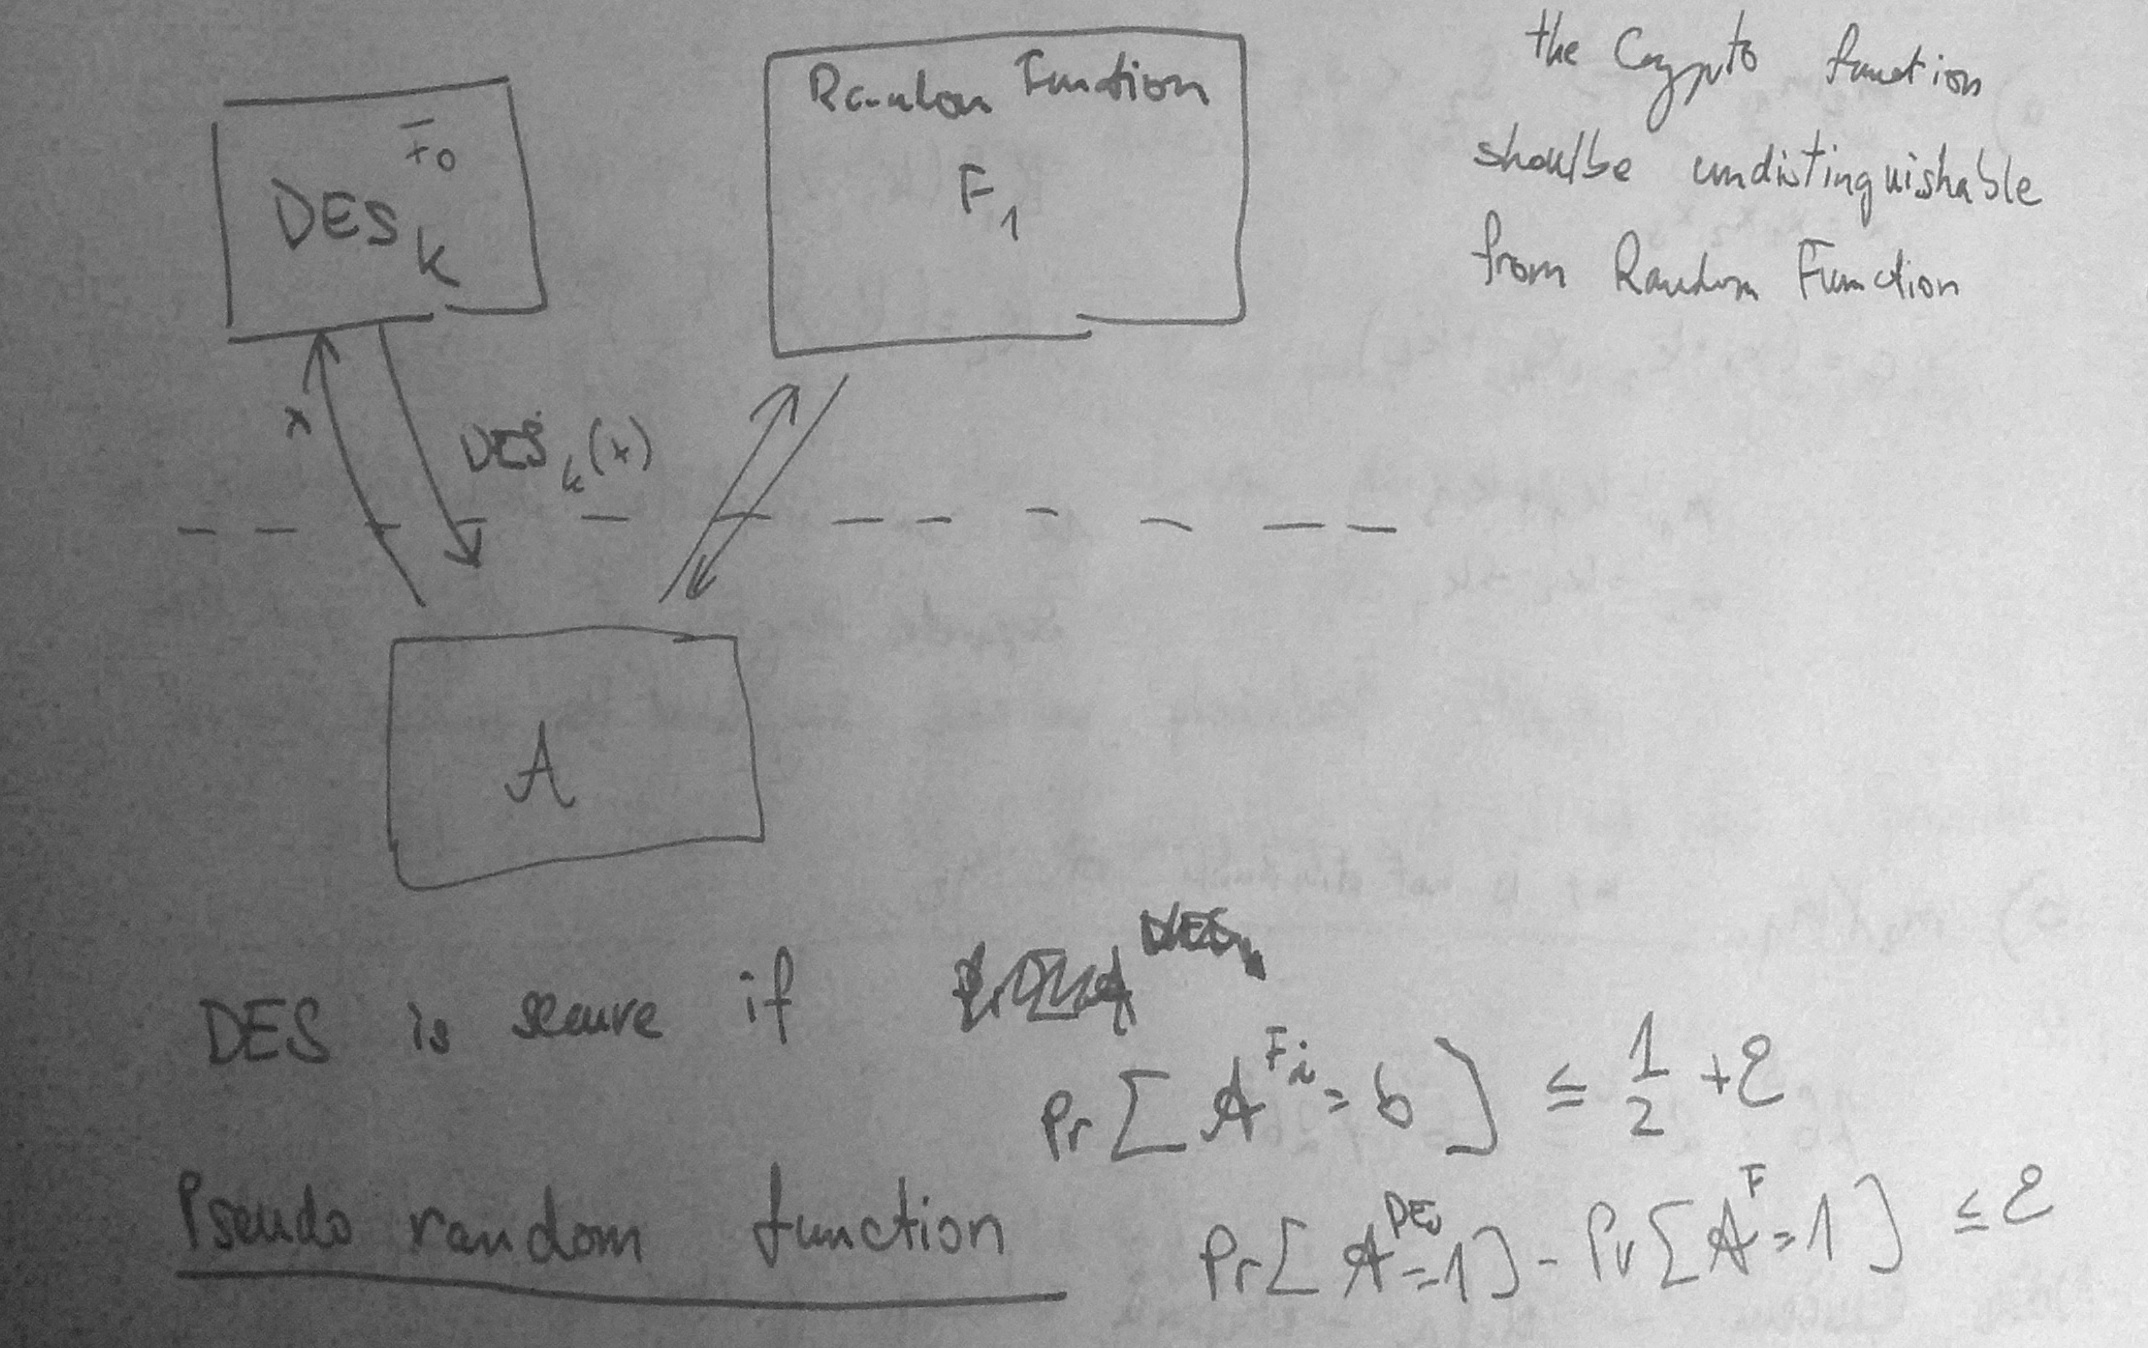 DES_k F_0
Random Function
F_1
the Crypto function
shoulbe undistinguishable
from Random Function
x
DES_k(x)
A
DES is secure if
Pr[A^{F_i} = b] ≤ 1/2 + ε
Pseudo random function
Pr[A^{DES} = 1] - Pr[A^F = 1] ≤ ε